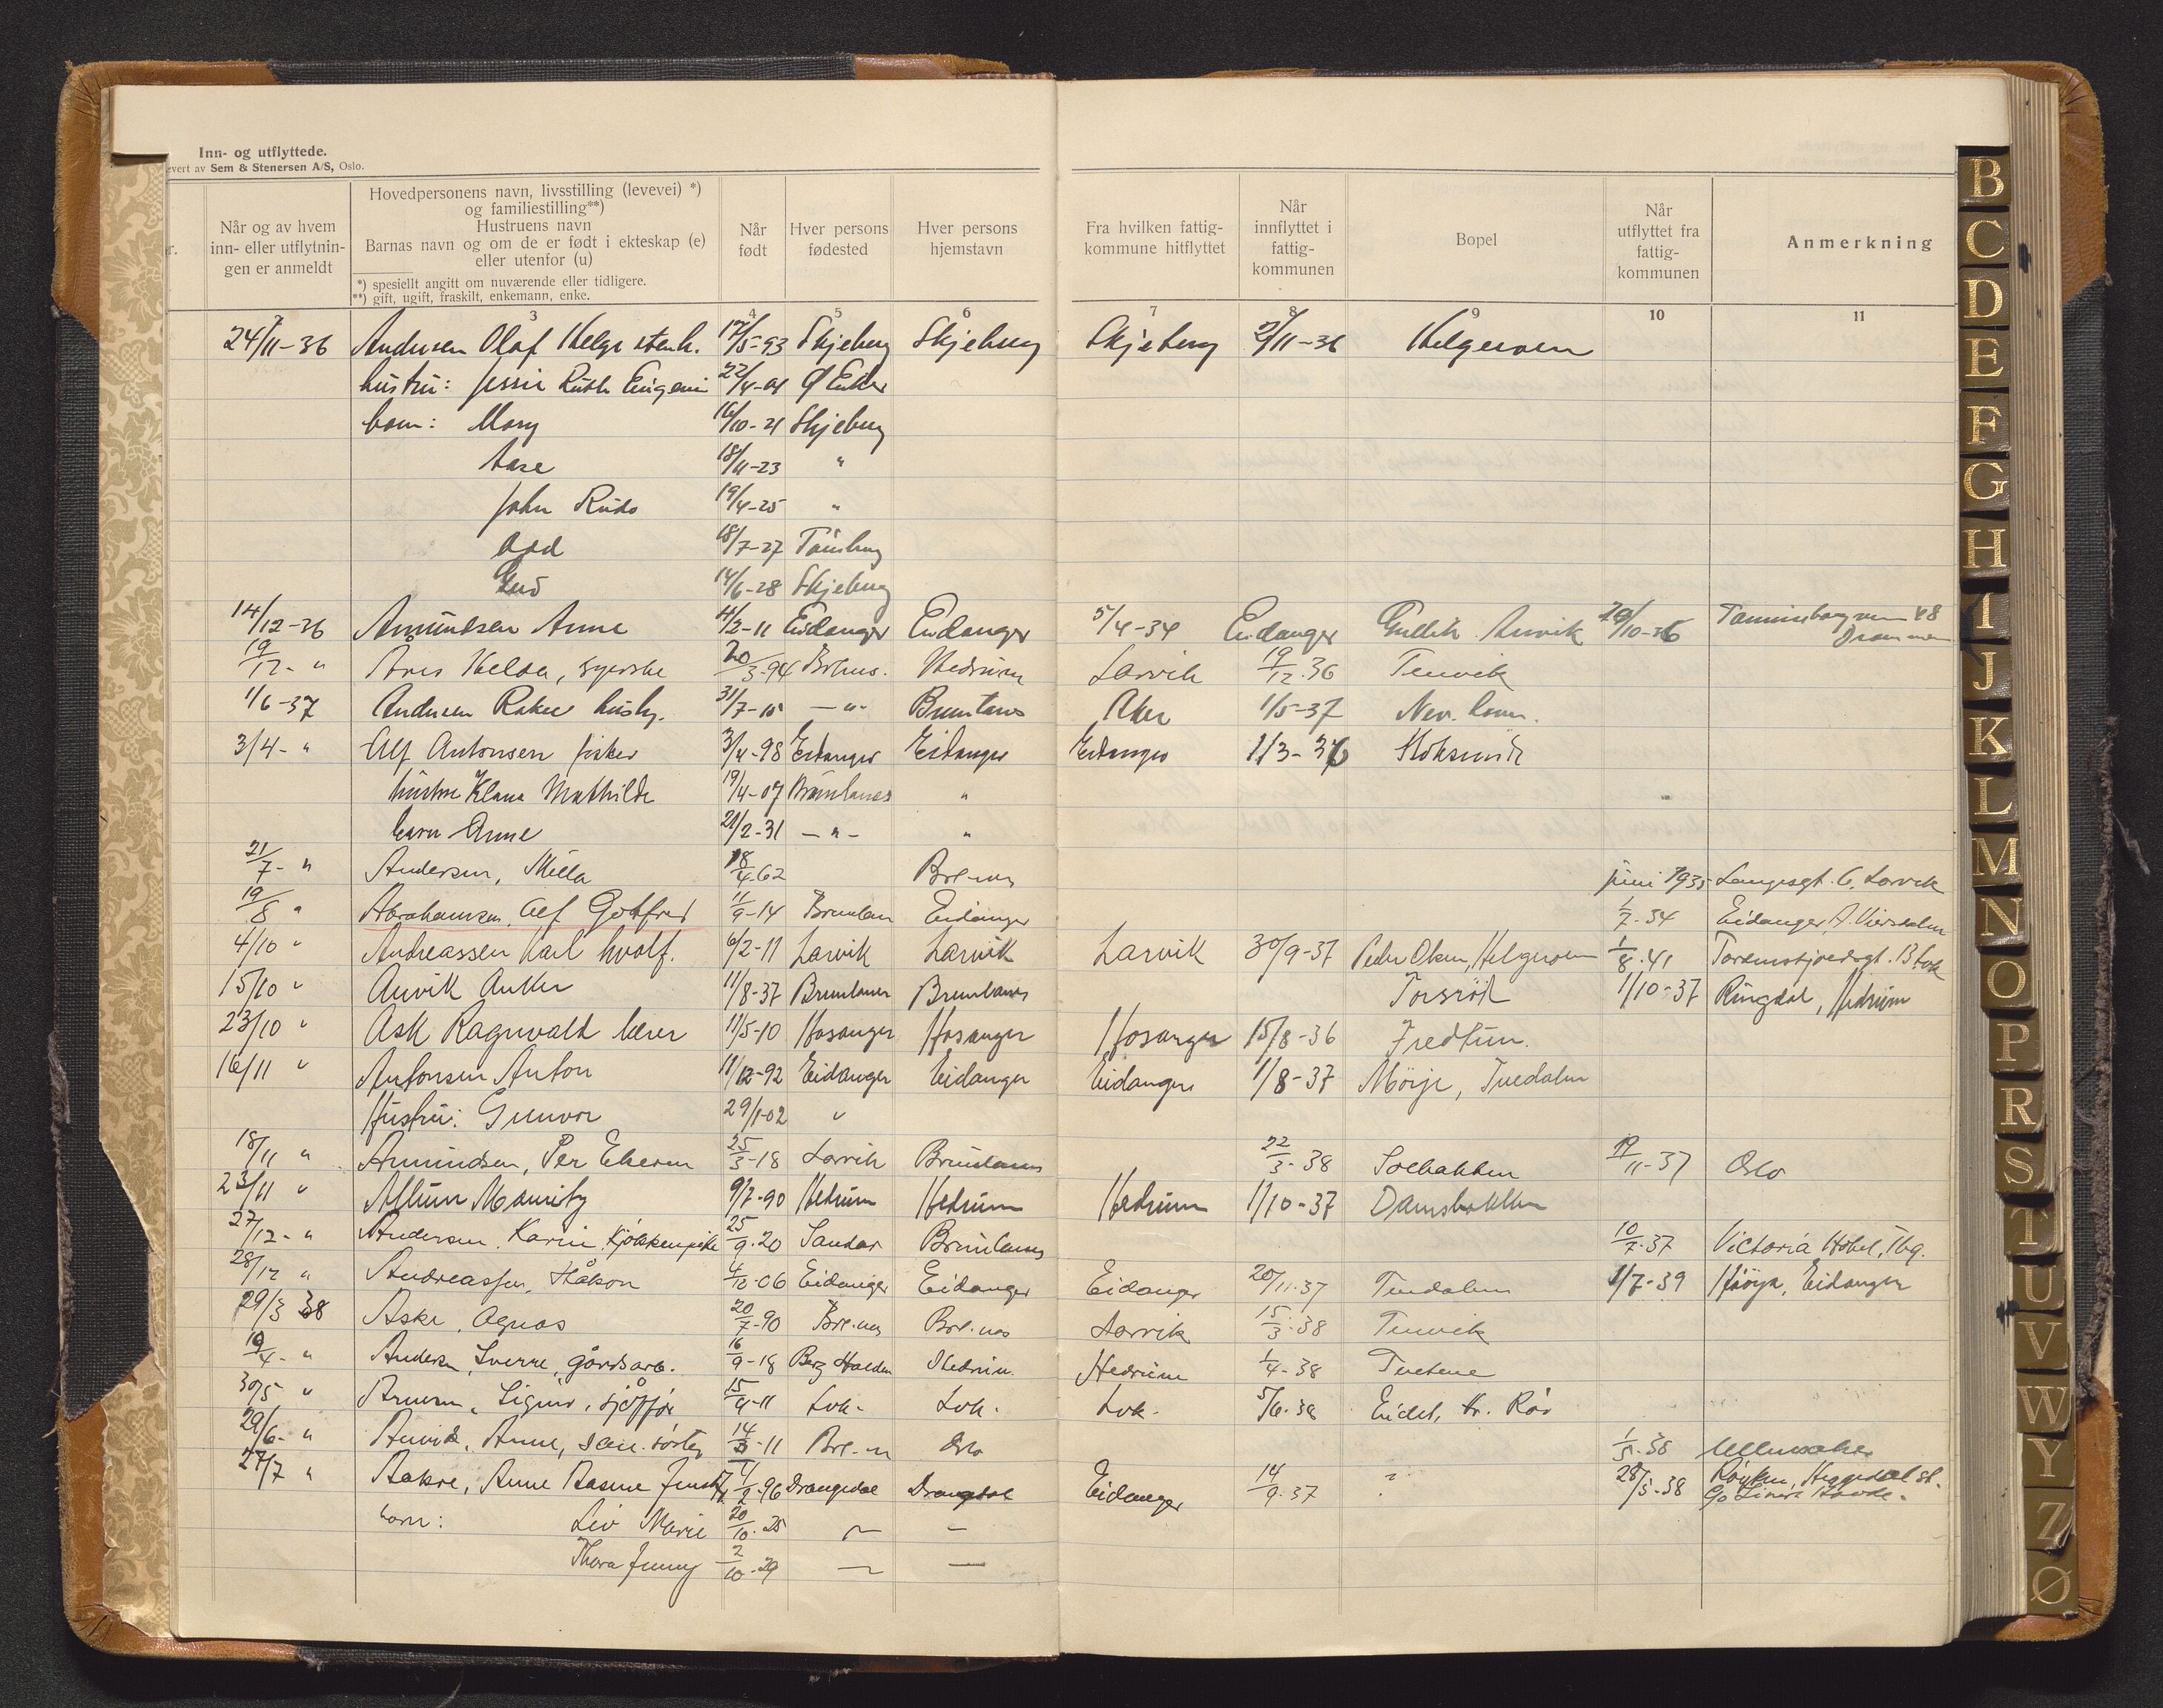 Inn- og utflyttede.
evert av Sem & Stenersen A/S, Oslo.
r.
Når og av hvem inn- eller utflytnin- gen er anmeldt
Hovedpersonens navn, livsstilling (levevei) *) og familiestilling**)
Hustruens navn
Barnas navn og om de er født i ekteskap (e) eller utenfor (u)
*) spesielt angitt om nuværende eller tidligere.
**) gift, ugift, fraskilt, enkemann, enke.
Når født
Hver persons fødested
Hver persons hjemstavn
Fra hvilken fattig- kommune hitflyttet
Når innflyttet i fattig- kommunen
Bopel
Når utflyttet fra fattig- kommunen
Anmerkning
3 4 5 6 7 8 9 10 11
24/11-36 Andersen Olaf Helge 17/5-93 Skjeberg Skjeberg Skjeberg 2/11-36 Helgeroen
hustru: Jessie Ruth Eugenie 22/4-01
barn: Mary 16/10-21 Skjeberg
Aase 18/11-23 "
John 19/4-25 "
Odd 18/7-27 Tønsberg
14/6-28 Skjeberg
14/12-36 Amundsen Anne 4/2-11 Eidanger Eidanger 5/4-34 Eidanger Gullik Anvik 20/10-36 48 Drammen
19/12- " Helda, syerske 20/3-94 Brlnes. Hedrum Larvik 19/12-36 Tenvik
1/6-37 Andersen 31/7-10 -"- Brunlanes Aker 1/5-37 Nev. havn.
3/4- " Alf Antonsen fisker 3/4-98 Eidanger Eidanger Eidanger 1/3-36
hustru Klara Mathilde 19/4-07 Brunlanes "
barn Anne 21/2-31 -"- "
21/7- " Andersen, Milla 18/4-62 Brl.nes juni 1935 Langesgt. 6, Larvik
19/8 " Abrahamsen, Alf Gotfred 11/9-14 Brunlan Eidanger 1/7-34 Eidanger
4/10 " Andreassen Karl hvalf. 6/2-11 Larvik Larvik Larvik 30/9-37 Peder Olsen, Helgeroen 1/8-41
15/10 " Anvik Anker 11/8-37 Brunlanes Brunlanes Torsrød 1/10-37 Ringdal, Hedrum
23/10 " Ask Ragnvald lærer 11/5-10 Hosanger Hosanger Hosanger 15/8-36 Fredtun.
16/11 " Antonsen Anton 11/12-92 Eidanger Eidanger Eidanger 1/8-37 Mørje, Tvedalen
Hustru: Gunvor 29/1-02 "
18/11 " Amundsen, Per 25/3-18 Larvik Brunlanes 22/3-38 Solbakken 19/11-37 Oslo
23/11 " Allum Mauritz 9/7-90 Hedrum Hedrum Hedrum 1/10-37 Damsbakken
27/12- " Andersen, Karin, Kjøkkenpike 25/9-20 Sandar Brunlanes 10/7-37 Victoria Hotel, Tbg.
28/12 " Andreassen, Håkon 4/12-06 Eidanger Eidanger Eidanger 20/11-37 Tvedalen 1/7-39 Høyja, Eidanger
29/3 38 Aske, Agnes 20/7-90 Brl.nes Brl.nes Larvik 15/3-38 Tenvik
19/4- " Anders, Sverre, gårdsarb. 16/9-18 Berg Halden Hedrum. Hedrum 1/4-38 Tvetene
30/5 " Sigurd, sjåfør 15/9-11 Lvk. Lvk. Lvk. 5/6-38 Eidet,
29/6- " Anvik, Anne, 14/3-11 Brl.n Oslo 1/5-38 Ullensaker
27/7 " Aakre, Anne 4/2-96 Drangedal Drangedal Eidanger 14/9-37 " 28/5-38 Røyken, Heggedal st.
barn: Liv Marie 20/10-25 — —
Thora Jenny 2/10-29 — —
B
C
D
E
F
G
H
I
J
K
L
M
N
O
P
R
S
T
U
V
W
Y
Z
Ø